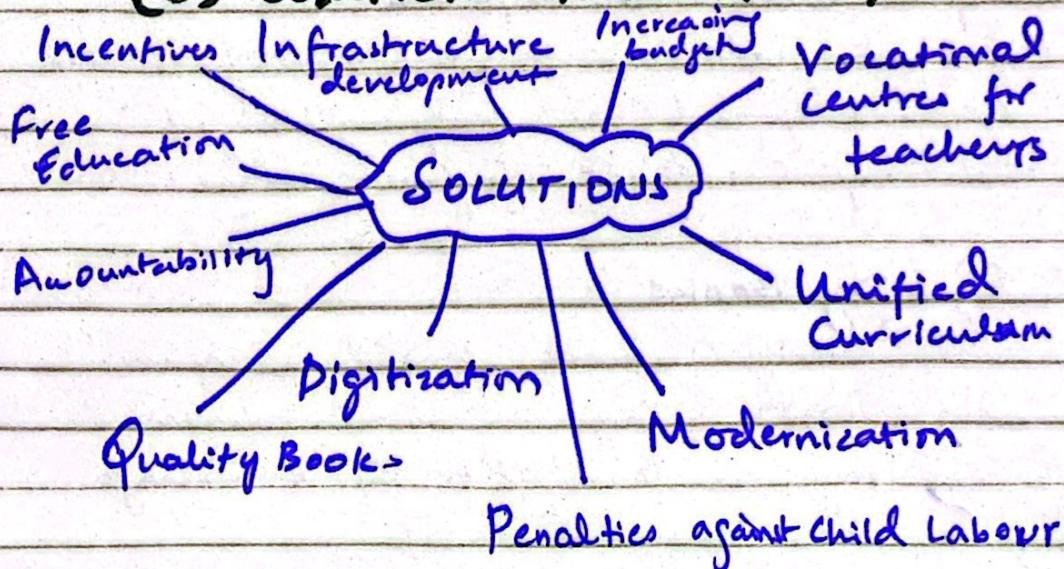 Incentives
Infrastructure
development
Increasing
budget
Vocational
centres for
teachers
Free
Education
SOLUTIONS
Accountability
Unified
Curriculum
Digitization
Modernization
Quality Books
Penalties against Child Labour